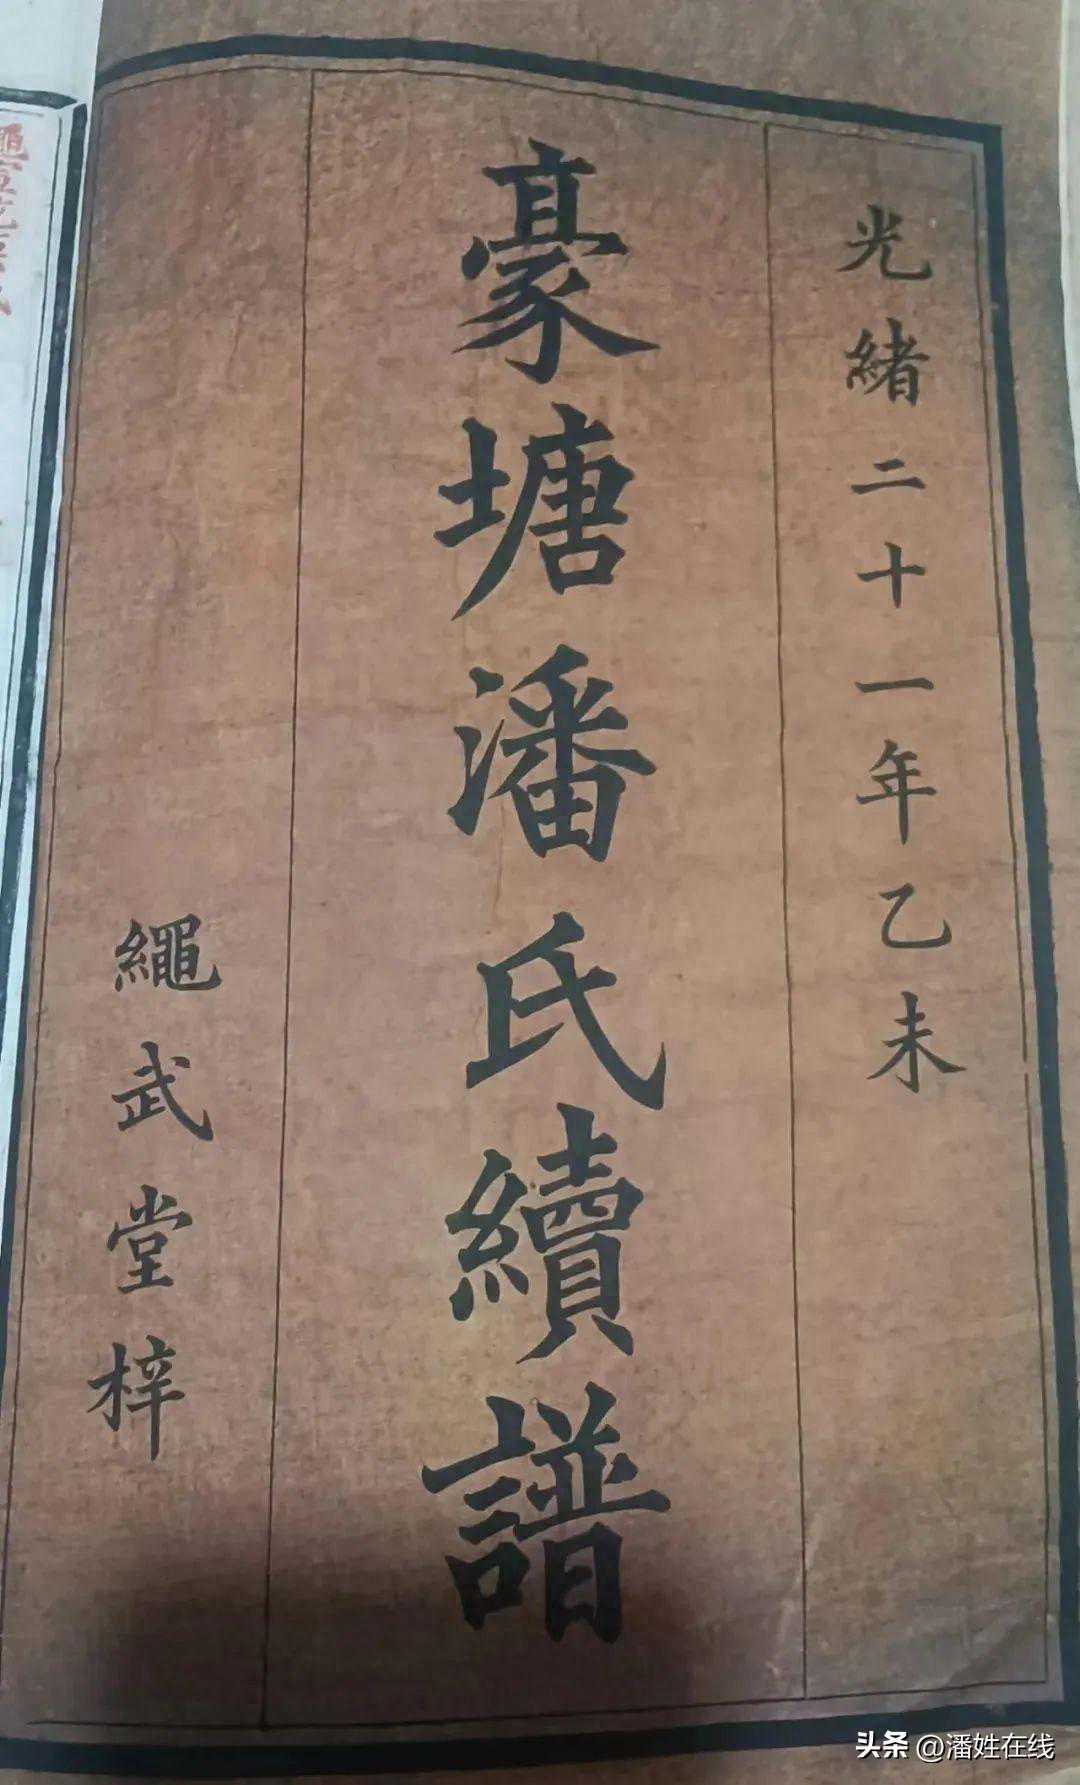 光緒二十一年乙未
豪塘潘氏續譜
繩武堂梓
头条 @潘姓在线